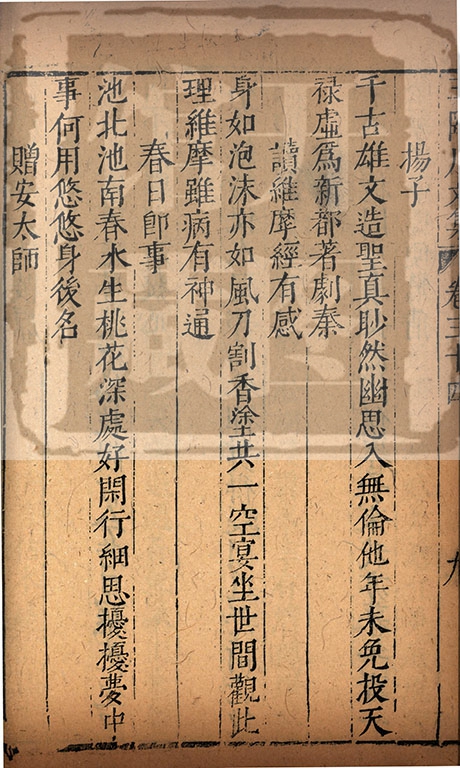 卷三十四
九
揚子
千古雄文造聖真眇然幽思入無倫他年未免投天
禄虛爲新都著劇秦
讀維摩經有感
身如泡沫亦如風刀割香塗共一空宴坐世間觀此
理維摩雖病有神通
春日卽事
池北池南春水生桃花深處好閑行細思擾擾夢中
事何用悠悠身後名
贈安太師